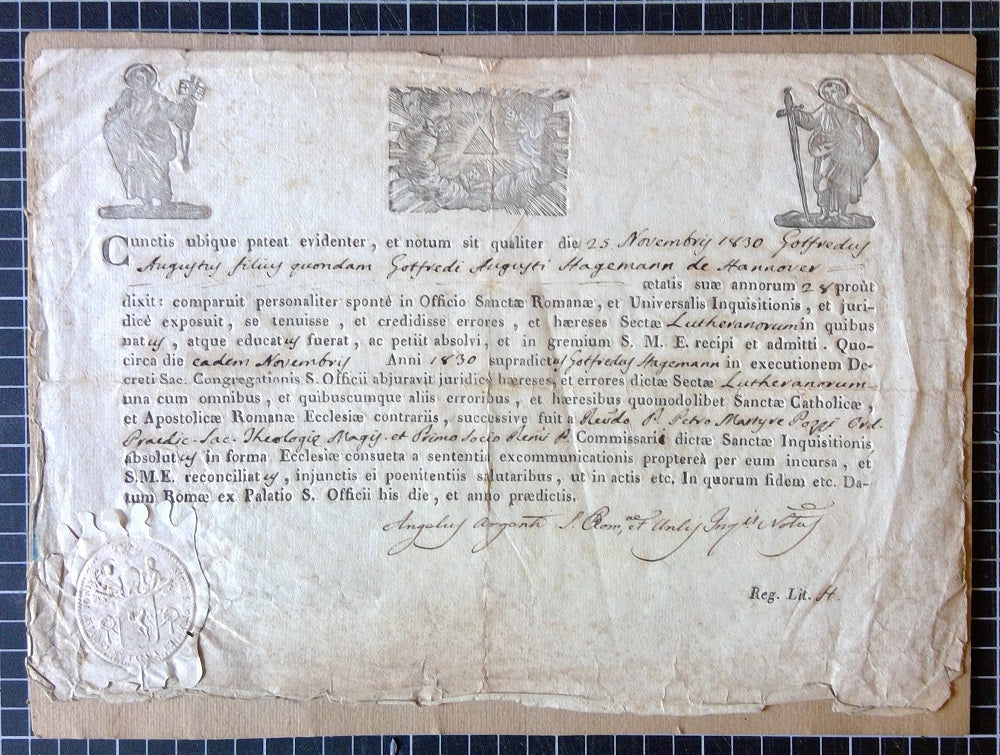 Cunctis ubique pateat evidenter, et notum sit qualiter die 25 Novembris 1830 Gotfredus
Augustus filius quondam Gotfredi Augusti Hagemann de Hannover
ætatis suæ annorum 28 proùt
dixit: comparuit personaliter spontè in Officio Sanctæ Romanæ, et Universalis Inquisitionis, et juri-
dicè exposuit, se tenuisse, et credidisse errores, et hæreses Sectæ Lutheranorum in quibus
natus, atque educatus fuerat, ac petiit absolvi, et in gremium S. M. E. recipi et admitti. Quo-
circa die eadem Novembris Anni 1830 supradictus Gotfredus Hagemann in executionem De-
creti Sac. Congregationis S. Officii abjuravit juridicè hæreses, et errores dictæ Sectæ Lutheranorum
una cum omnibus, et quibuscumque aliis erroribus, et hæresibus quomodolibet Sanctæ Catholicæ,
et Apostolicæ Romanæ Ecclesiæ contrariis, successivè fuit a P. Petro Martyre Pozzi Ord.
Praedic. Sac. Theologiæ Magis. et Primo Socio P. Commissarii dictæ Sanctæ Inquisitionis
absolutus in forma Ecclesiæ consueta a sententia excommunicationis proptereà per eum incursa, et
S.M.E. reconciliatus, injunctis ei poenitentiis salutaribus, ut in actis etc. In quorum fidem etc. Da-
tum Romæ ex Palatio S. Officii his die, et anno prædictis.
Angelus Argenti S. Rom. et Unlis Inqis Notus
Reg. Lit. H.